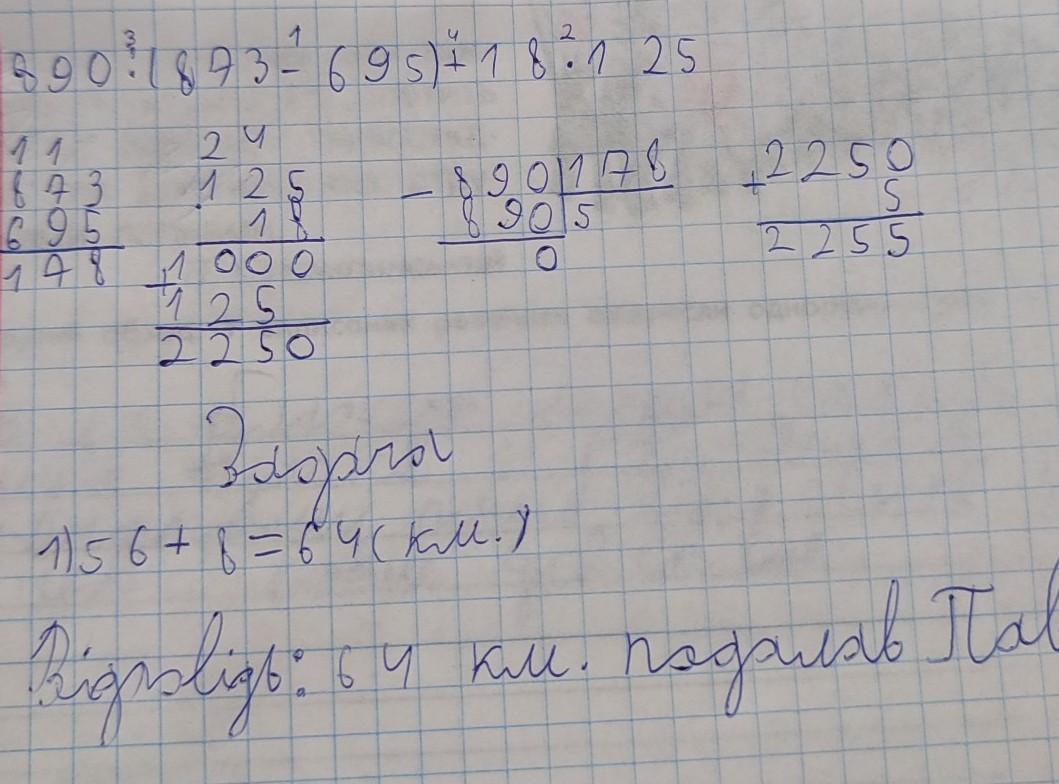 3 1 4 2
890:(873-695)+18·125
11
873
695
178
24
125
18
+1000
125
2250
- 890 178
890 5
0
2250
+ 5
2255
Задача
1) 56 + 8 = 64 (км.)
Відповідь: 64 км. подалав